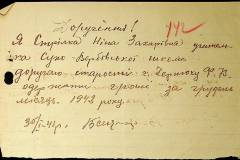 Доручення!
142
Я Стрілка Ніна Захарівна учителька
Сухо-Вербівської школи
доручаю старості г. Ф. В.
одержати гроші за грудень
місяць 1942 року
30/I-43 р.